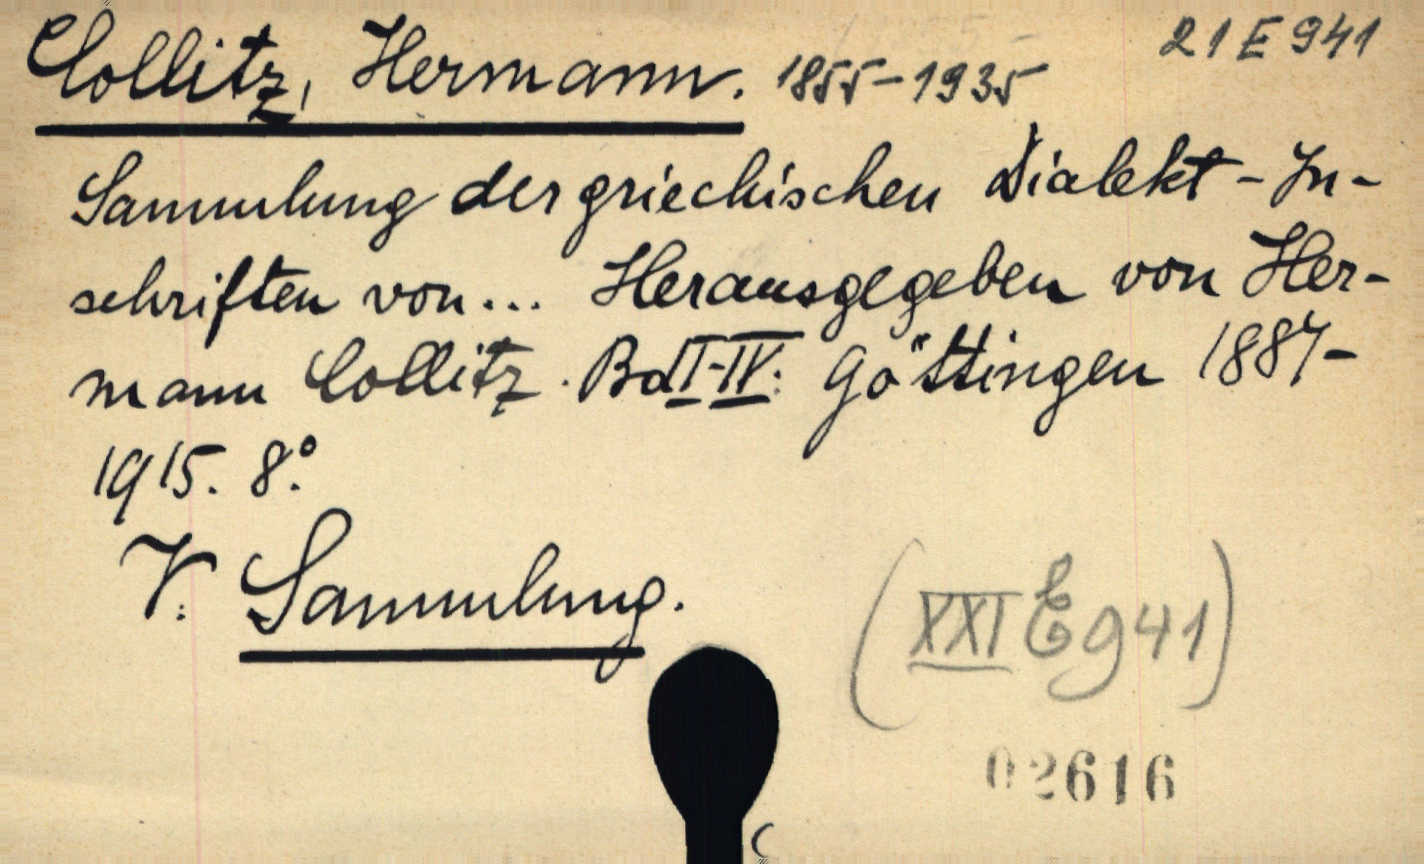 Collitz, Hermann. 1855-1935 21 E 941
Sammlung der griechischen Dialekt-In-
schriften von... Herausgegeben von Her-
mann Collitz. Bd I-IV. Göttingen 1884-
1915. 8°.
V. Sammlung.
(XXI E 941)
02616
C